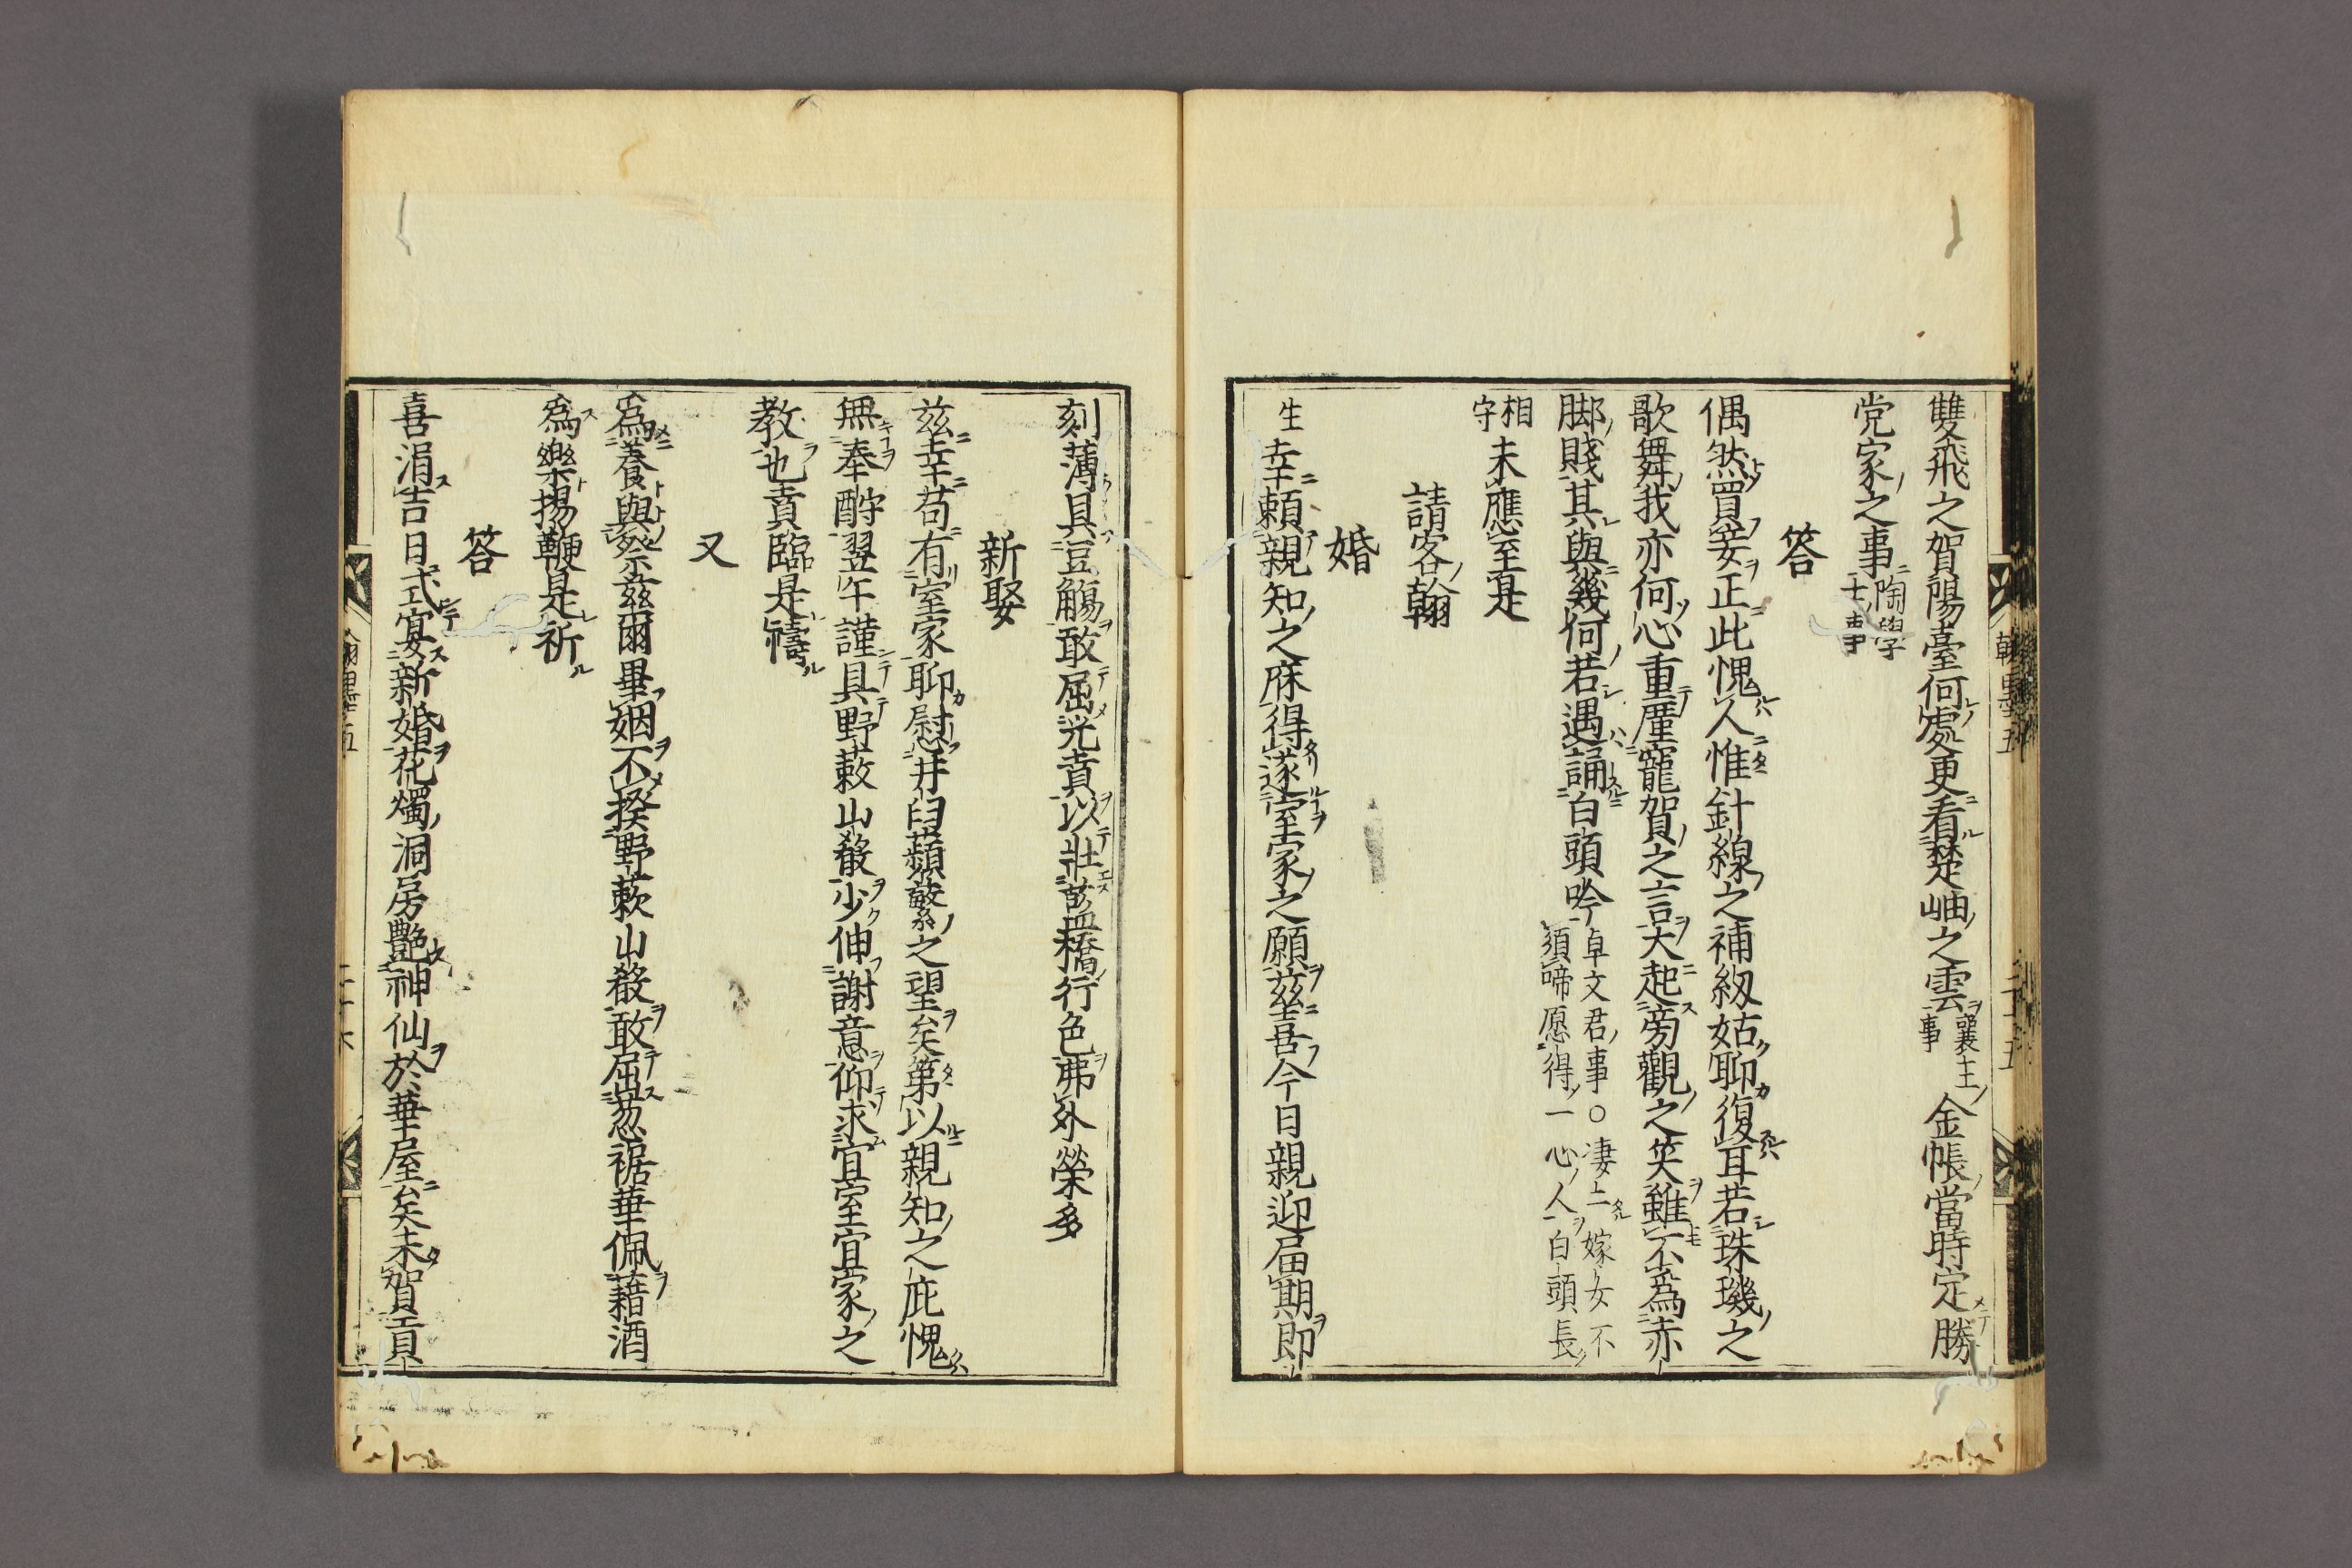 雙飛之賀陽臺何處更看楚岫之雲襄王事金帳當時定勝
党家之事陶學士事
答
偶然買妾正此愧人惟針線之補紉姑聊復耳若珠璣之
歌舞我亦何心重厪寵賀之言大起旁觀之笑雖不爲赤
脚賤其與幾何若遇誦白頭吟卓文君事○凄二嫁女不須啼愿得一心人白頭長
相守未應至是
請客翰
婚
生幸頼親知之庥得遂室家之願茲吾今日親迎届期即
刻薄具豆觴敢屈光賁以壯藍橋行色弗外榮多
新娶
茲幸苟有室家聊慰井臼蘋蘩之望矣第以親知之庇愧
無奉酧翌午謹具野蔌山殽少伸謝意仰求宜室宜家之
教也賁臨是禱
又
爲養與祭茲爾畢姻不揆野蔌山殽敢屈葱裾華佩藉酒
爲樂揚鞭是祈
答
喜涓吉日式宴新婚花燭洞房艶神仙於華屋矣未賀貢
翰墨五